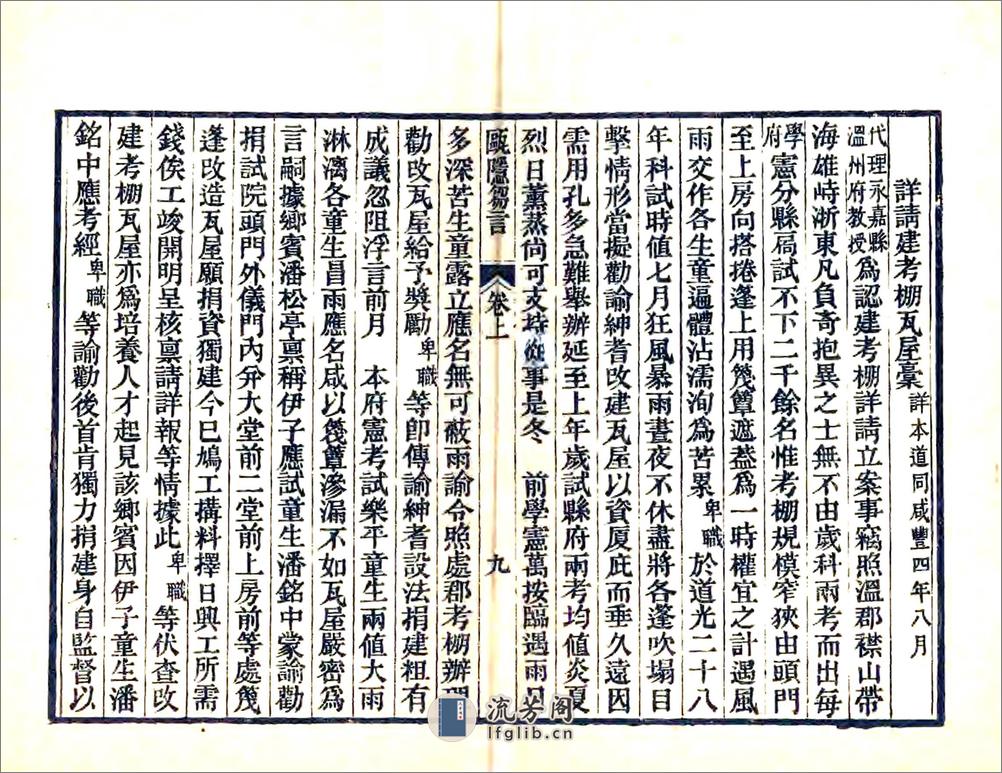 詳請建考棚瓦屋稟 詳本道同咸豐四年八月
代理永嘉縣溫州府教授為認建考棚詳請立案事竊照溫郡襟山帶
海雄峙浙東凡負奇抱異之士無不由歲科兩考而出每
學府憲分縣扃試不下二千餘名惟考棚規模窄狹由頭門
至上房向搭捲蓬上用篾簟遮葢為一時權宜之計遇風
雨交作各生童遍體沾濡洵為苦累卑職於道光二十八
年科試時值七月狂風暴雨晝夜不休盡將各蓬吹塌目
擊情形當擬勸諭紳耆改建瓦屋以資厦庇而垂久遠因
需用孔多急難舉辦延至上年歲試縣府兩考均值炎夏
烈日薰蒸尚可支持從事是冬 前學憲萬按臨遇雨日
甌隱芻言 卷上 九
多深苦生童露立應名無可蔽雨諭令照處郡考棚辦理
勸改瓦屋給予獎勵卑職等卽傳諭紳耆設法捐建粗有
成議忽阻浮言前月 本府憲考試樂平童生兩值大雨
淋漓各童生昌雨應名咸以篾簟滲漏不如瓦屋嚴密為
言嗣據鄉賓潘松亭稟稱伊子應試童生潘銘中蒙諭勸
捐試院頭門外儀門內分大堂前二堂前上房前等處篾
蓬改造瓦屋願捐資獨建今巳鳩工搆料擇日興工所需
錢俟工竣開明呈核稟請詳報等情據此卑職等伏查改
建考棚瓦屋亦為培養人才起見該鄉賓因伊子童生潘
銘中應考經卑職等諭勸後首肯獨力捐建身自監督以
流芳阁
lfglib.cn